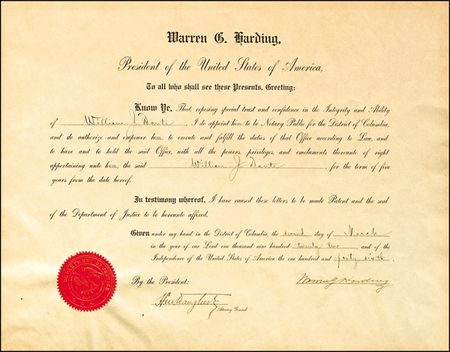 Warren G. Harding,
President of the United States of America,
To all who shall see these Presents, Greeting:
Know Ye, That, reposing special trust and confidence in the Integrity and Ability
of William J. I do appoint him to be Notary Public for the District of Columbia,
and do authorize and empower him to execute and fulfill the duties of that Office according to Law, and
to have and to hold the said Office, with all the powers, privileges, and emoluments thereunto of right
appertaining unto him, the said William J. for the term of five
years from the date hereof.
In testimony whereof, I have caused these letters to be made Patent and the seal
of the Department of Justice to be hereunto affixed.
Given under my hand in the District of Columbia, the second day of March
in the year of our Lord one thousand nine hundred twenty two and of the
Independence of the United States of America the one hundred and forty sixth.
By the President: Warren G Harding
Attorney General